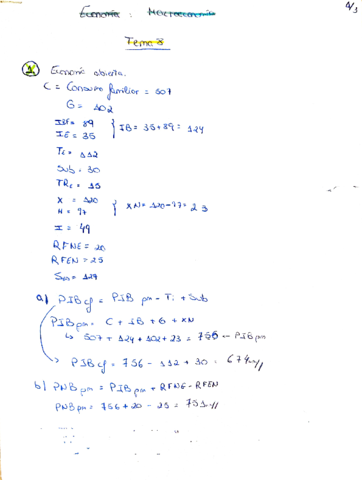 Economía: Macroeconomía
Tema 8
1 Economía abierta.
C = Consumo familiar = 507
G = 102
IBF = 89
IE = 35
IB = 35+89 = 124
Ti = 112
Sub = 30
TRc = 15
X = 120
M = 97
XN = 120-97 = 23
I = 49
RFNE = 20
RFEN = 25
= 129
a) PIBcf = PIBpm - Ti + Sub
PIBpm = C + IB + G + XN
↳ 507 + 124 + 102 + 23 = 756 ← PIBpm
PIBcf = 756 - 112 + 30 = 674 //
b) PNBpm = PIBpm + RFNE - RFEN
PNBpm = 756 + 20 - 25 = 751 //